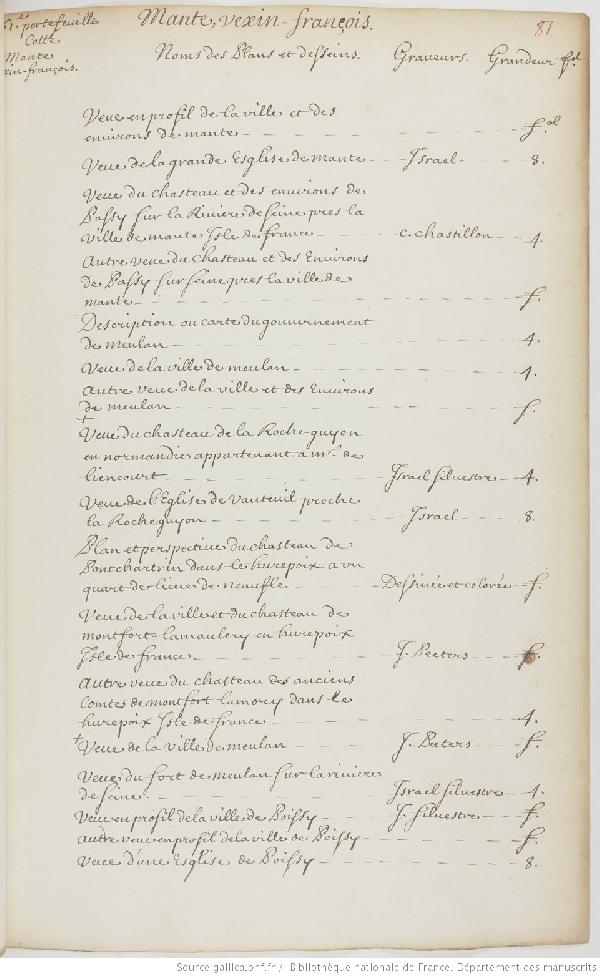 Mante, vexin-françois. 81
portefeuille
Cotté
Mante
xin-françois.
Noms des Plans et desseins. Graveurs. Grandeur
Veue en profil de la ville et des
environs de mante f.ol
Veue de la grande Esglise de mante Israel 8.
Veue du chasteau et des environs de
Passy sur la Riviere de seine pres la
ville de mante Isle de france c. chastillon 4.
Autre veue du chasteau et des Environs
de Passy sur seine pres la ville de
mante f.
Description ou carte du gouvernement
de meulan 4.
Veue de la ville de meulan 4.
Autre veue de la ville et des Environs
de meulan f.
+
Veue du chasteau de la Roche-guyon
en normandie appartenant a mr. de
liencourt Israel silvestre 4.
Veue de l'Eglise de vauteuil proche
la Rocheguyon Israel 8.
Plan et perspective du chasteau de
Pontchartrin dans le hurepoix a vn
quart de lieue de neaufle. Dessinée et colorée f.
Veue de la ville et du chasteau de
montfort-lamaulery en hurepoix
Isle de france J. Peeters f.
Autre veue du chasteau des anciens
Comtes de montfort lamory dans le
hurepoix Isle de france 4.
+ Veue de la ville de meulan J. Peeters f.
Veue du fort de meulan sur la riviere
de seine. Israel silvestre 4.
Veue en profil de la ville de Poissy J. silvestre f.
autre veue en profil de la ville de Poissy f.
Veue d'une Esglise de Poissy 8.
Source gallica.bnf.fr / Bibliothèque nationale de France. Département des manuscrits